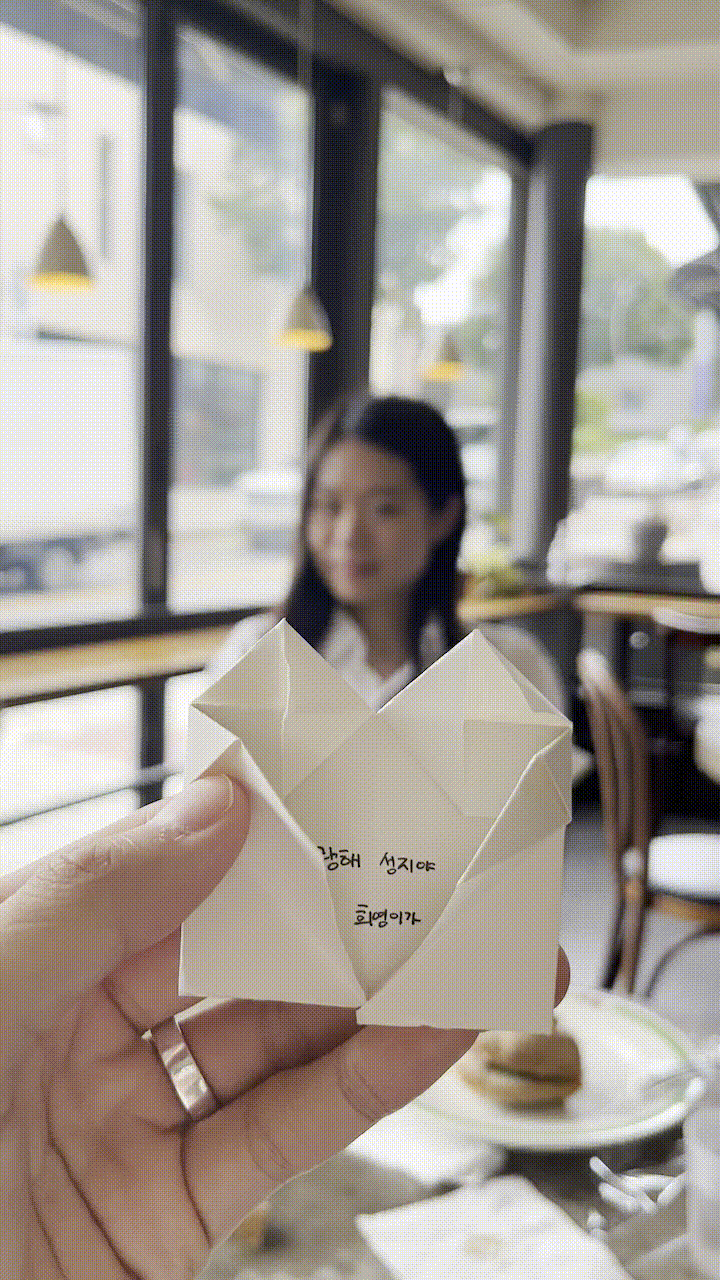 랑해 성지야
희영이가